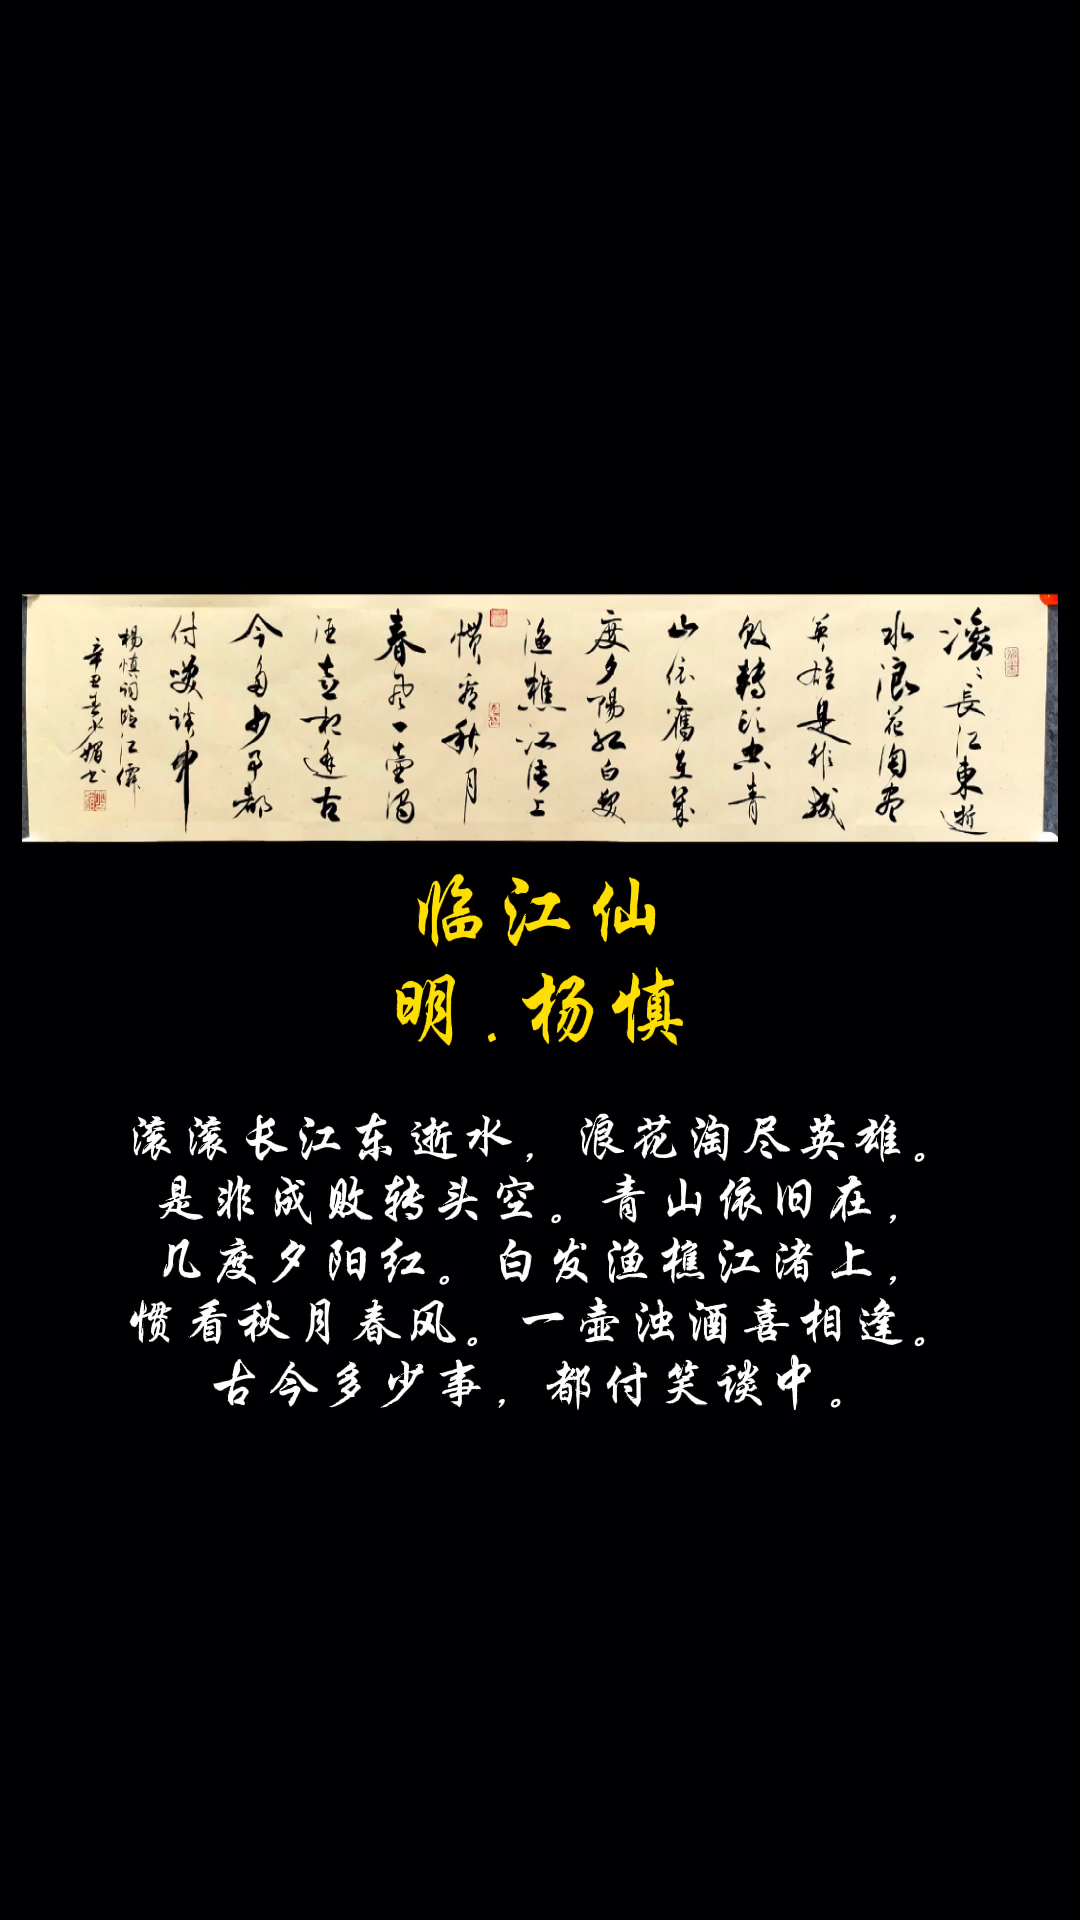 滚〻長江東逝
水浪花淘尽
英雄是非成
敗轉头空青
山依舊在幾
度夕陽红白髮
渔樵江渚上
惯看秋月
春风一壶濁
酒喜相逢古
今多少事都
付笑谈中
楊慎词临江僊
辛丑春 媚书
临江仙
明.杨慎
滚滚长江东逝水，浪花淘尽英雄。
是非成败转头空。青山依旧在，
几度夕阳红。白发渔樵江渚上，
惯看秋月春风。一壶浊酒喜相逢。
古今多少事，都付笑谈中。